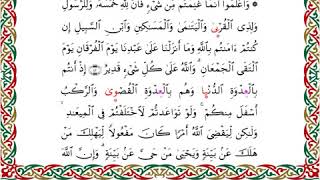 ۞ وَٱعْلَمُوٓا۟ أَنَّمَا غَنِمْتُم مِّن شَىْءٍ فَأَنَّ لِلَّهِ خُمُسَهُۥ وَلِلرَّسُولِ
وَلِذِى ٱلْقُرْبَىٰ وَٱلْيَتَٰمَىٰ وَٱلْمَسَٰكِينِ وَٱبْنِ ٱلسَّبِيلِ إِن
كُنتُمْ ءَامَنتُم بِٱللَّهِ وَمَآ أَنزَلْنَا عَلَىٰ عَبْدِنَا يَوْمَ ٱلْفُرْقَانِ يَوْمَ
ٱلْتَقَى ٱلْجَمْعَانِ ۗ وَٱللَّهُ عَلَىٰ كُلِّ شَىْءٍ قَدِيرٌ ﴿٤١﴾ إِذْ أَنتُم
بِٱلْعُدْوَةِ ٱلدُّنْيَا وَهُم بِٱلْعُدْوَةِ ٱلْقُصْوَىٰ وَٱلرَّكْبُ
أَسْفَلَ مِنكُمْ ۚ وَلَوْ تَوَاعَدتُّمْ لَٱخْتَلَفْتُمْ فِى ٱلْمِيعَٰدِ ۙ
وَلَٰكِن لِّيَقْضِىَ ٱللَّهُ أَمْرًا كَانَ مَفْعُولًا لِّيَهْلِكَ مَنْ
هَلَكَ عَنۢ بَيِّنَةٍ وَيَحْيَىٰ مَنْ حَىَّ عَنۢ بَيِّنَةٍ ۗ وَإِنَّ ٱللَّهَ